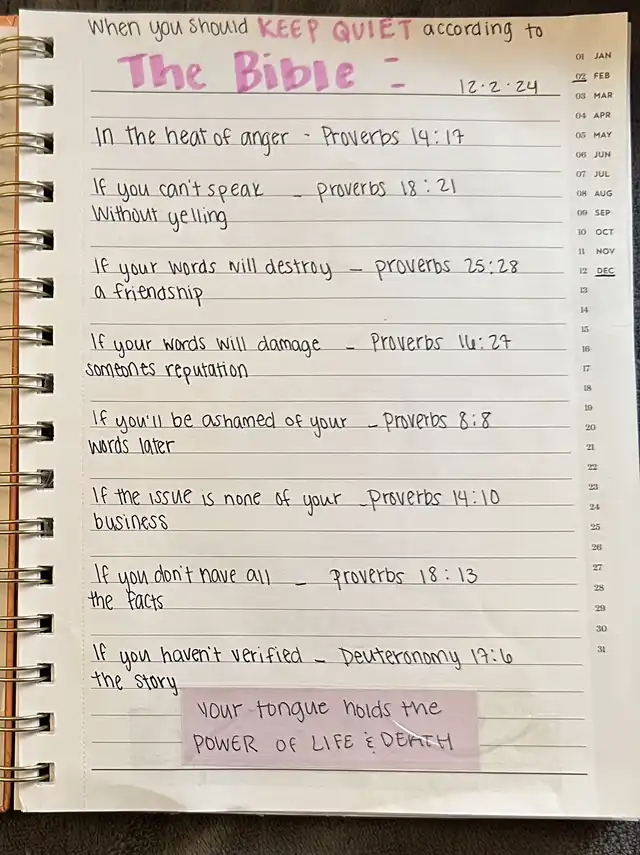 When you should KEEP QUIET according to
The Bible :
12.2.24
In the heat of anger - Proverbs 14:17
If you can't speak - proverbs 18:21
Without yelling
If your words will destroy - proverbs 25:28
a friendship
If your words will damage - Proverbs 16:27
someones reputation
If you'll be ashamed of your - Proverbs 8:8
words later
If the issue is none of your - Proverbs 14:10
business
If you don't have all - proverbs 18:13
the facts
If you haven't verified - Deuteronomy 17:6
the story
your tongue holds the
POWER OF LIFE & DEATH
01 JAN
02 FEB
03 MAR
04 APR
05 MAY
06 JUN
07 JUL
08 AUG
09 SEP
10 OCT
11 NOV
12 DEC
13
14
15
16
17
18
19
20
21
22
23
24
25
26
27
28
29
30
31